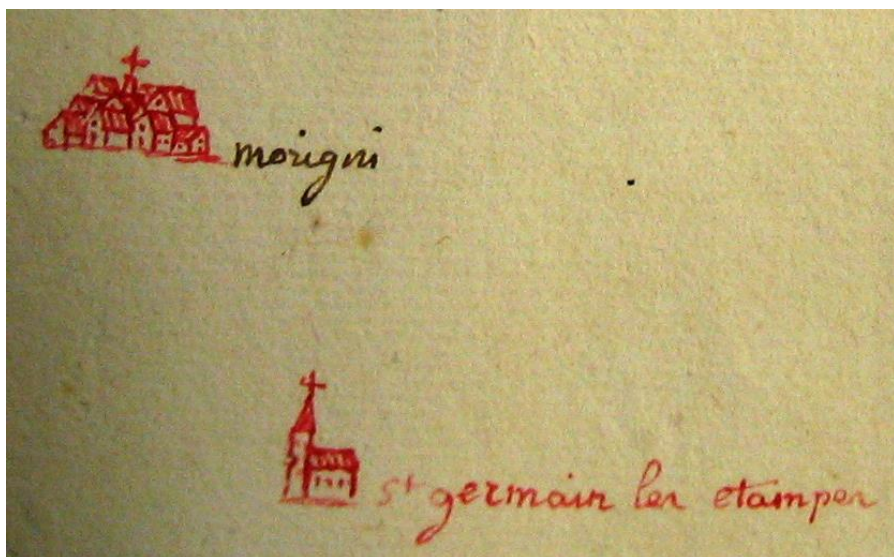 morigni
st germain les etampes